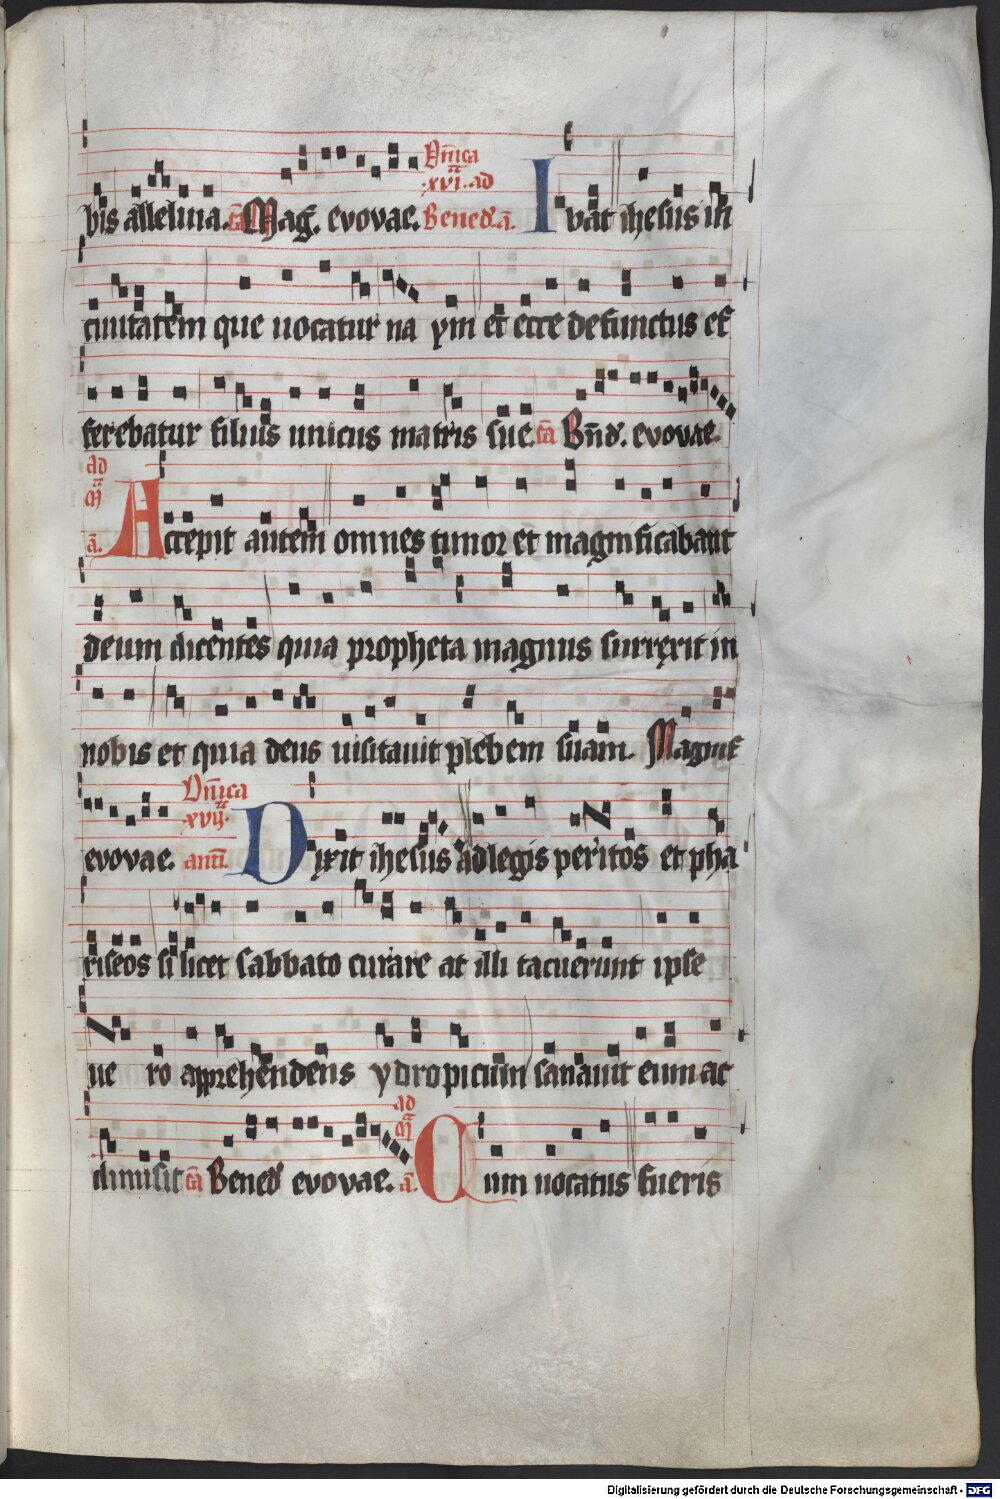 65
Dn̄ica
.xvi. ad
bis alleluia. ca Mag̅. evovae. Bened̄. a̅. Ibat ihesus in
ciuitatem que uocatur na ym et ecce defunctus ef
ferebatur filius unicus matris sue. ca Bn̄d̄. evovae.
ad
M̄
a̅. Accepit autem omnes timor et magnificabant
deum dicentes quia propheta magnus surrexit in
nobis et quia deus uisitauit plebem suam. Magnif
Dn̄ica
.xvij.
evovae. anti. Dixit ihesus ad legis peritos et pha
riseos si licet sabbato curare at illi tacuerunt ipse
ue ro apprehendens ydropicum sanauit eum ac
ad
M̄
dimisit ca Bened̄ evovae. a̅. Cum uocatus fueris
Digitalisierung gefördert durch die Deutsche Forschungsgemeinschaft - DFG